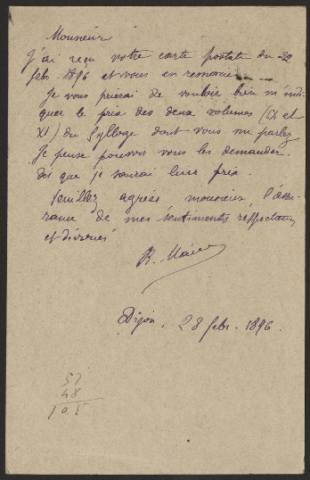 Monsieur
J'ai reçu votre carte postale du 22
febr. 1896 et vous en remercie.
Je vous prierai de vouloir bien m'indi-
quer le prix des deux volumes (IX et
XI) du Sylloge dont vous me parlez.
Je pense pouvoir vous les demander
dès que je saurai leur prix.
Veuillez agréer, monsieur, l'assu-
rance de mes sentiments respectueux
et dévoués
R. Maire
Dijon, 28 febr. 1896.
57
48
105